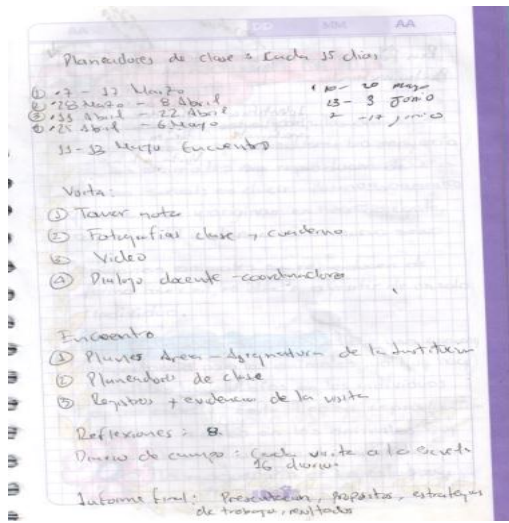 AA
Planeadores de clase : Cada 15 dias
① · 7 - 17 Marzo
② · 28 Marzo - 8 Abril
③ · 11 Abril - 22 Abril
④ · 25 Abril - 6 Mayo
10 - 20 mayo
23 - 3 Junio
- 17 junio
11 - 13 Mayo Encuentro
Visita:
① Tomar nota
② Fotografias clase y cuaderno
③ Video
④ Dialogo docente - coordinadora
Encuentro
① Planes Area - Asignatura de la Institucion
② Planeadores de clase
③ Registros y evidencia de la visita
Reflexiones : 8.
Diario de campo : Cada visita a la escuela
16 diarios
Informe final : Presentacion, propositos, estrategias
de trabajo, resultados